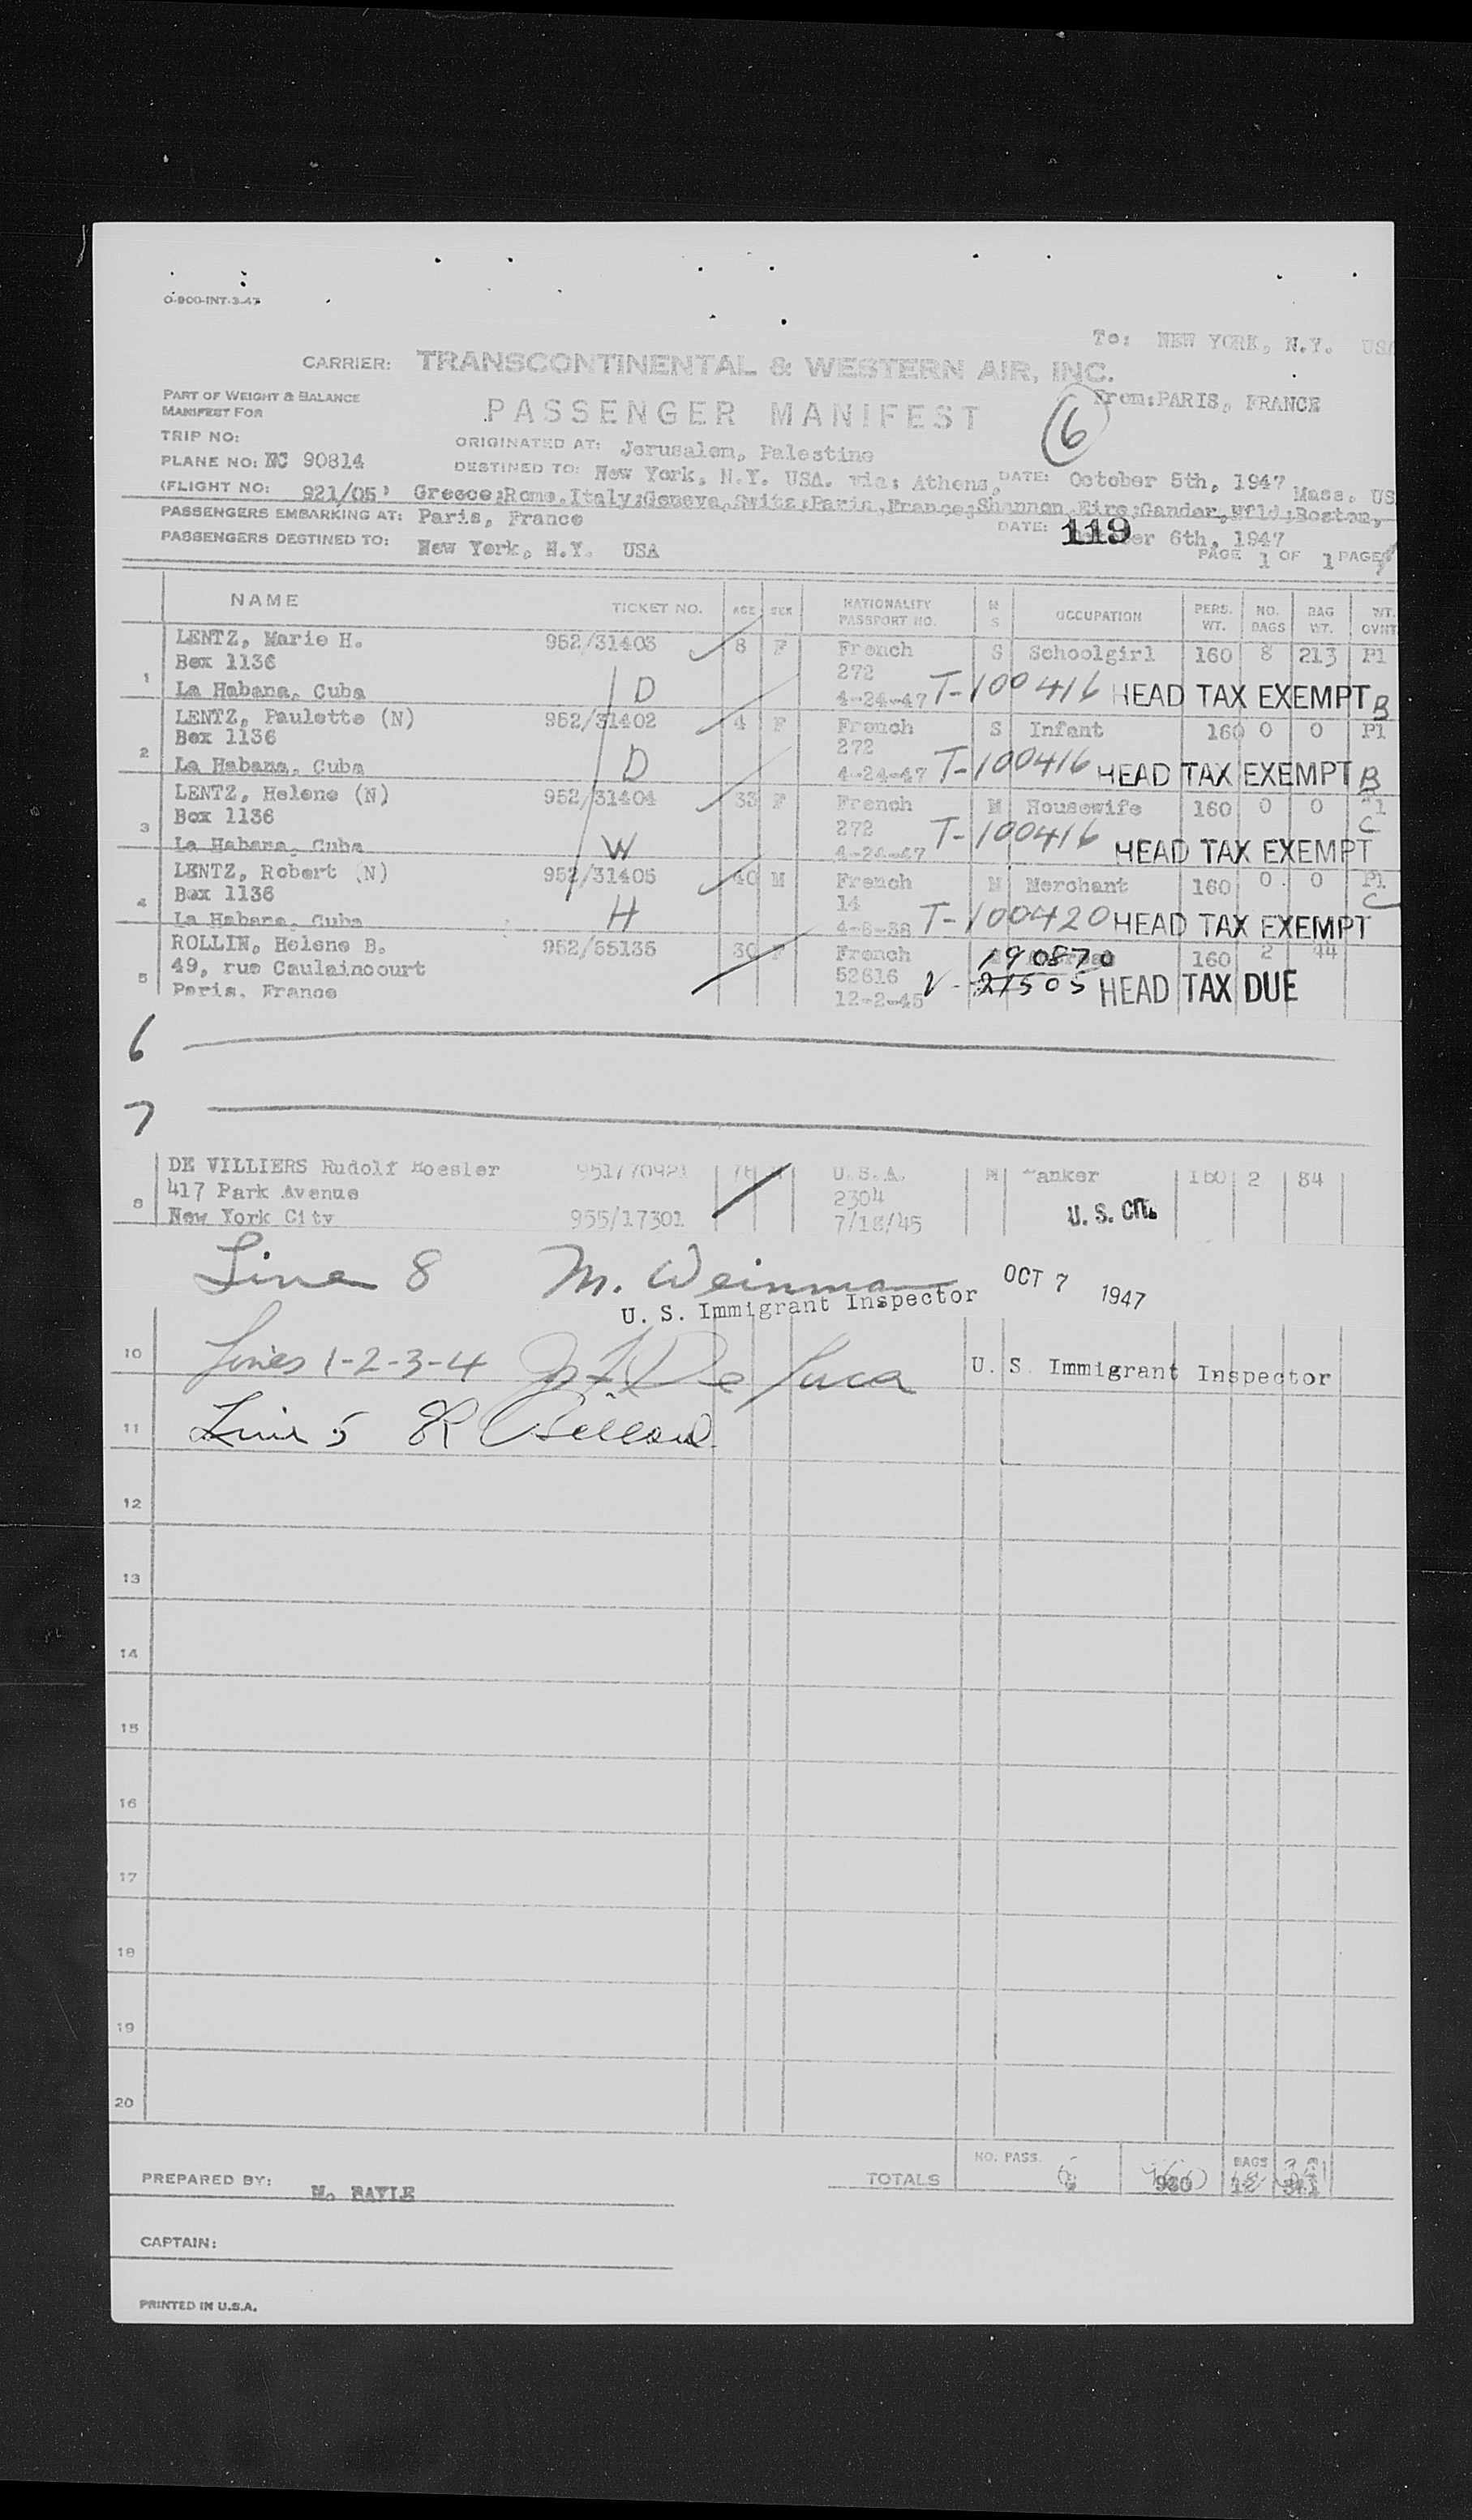 O-900-INT-3-47
To: NEW YORK, N.Y. USA
CARRIER: TRANSCONTINENTAL & WESTERN AIR, INC.
PART OF WEIGHT & BALANCE
MANIFEST FOR
PASSENGER MANIFEST
6
From: PARIS, FRANCE
TRIP NO:
ORIGINATED AT: Jerusalem, Palestine
PLANE NO: NC 90814
DESTINED TO: New York, N.Y. USA. via: Athens, DATE: October 5th, 1947 Mass. US
(FLIGHT NO: 921/05) Greece;Rome,Italy;Geneva,Switz;Paris,France;Shannon,Eire;Gander,Nfld;Boston,
PASSENGERS EMBARKING AT: Paris, France
DATE: 119 er 6th, 1947
PASSENGERS DESTINED TO: New York, N.Y. USA
PAGE 1 OF 1 PAGES
NAME TICKET NO. AGE SEX NATIONALITY PASSPORT NO. M S OCCUPATION PERS. WT. NO. BAGS BAG WT. WT. OVNT
LENTZ, Marie H. 952/31403 8 F French S Schoolgirl 160 8 213 Pl
Box 1136 272
1 La Habana, Cuba D 4-24-47 T-100416 HEAD TAX EXEMPT B
LENTZ, Paulette (N) 952/31402 4 F French S Infant 160 0 0 Pl
Box 1136 272
2 La Habana, Cuba D 4-24-47 T-100416 HEAD TAX EXEMPT B
LENTZ, Helene (N) 952/31404 33 F French M Housewife 160 0 0 Pl
Box 1136 272 C
3 La Habana, Cuba W 4-24-47 T-100416 HEAD TAX EXEMPT
LENTZ, Robert (N) 952/31405 40 M French M Merchant 160 0 0 Pl
Box 1136 14 C
4 La Habana, Cuba H 4-6-38 T-100420 HEAD TAX EXEMPT
ROLLIN, Helene B. 952/55135 30 F French 190870 160 2 44
49, rue Caulaincourt 52616
5 Paris, France 12-2-45 V-21505 HEAD TAX DUE
6
7
DE VILLIERS Rudolf Roesler 951/70921 76 U.S.A. M Banker 160 2 84
417 Park Avenue 2304
8 New York City 955/17301 7/18/45 U.S. Cit.
Line 8 M. Weinman OCT 7 1947
U. S. Immigrant Inspector
10 Lines 1-2-3-4 De Luca U. S. Immigrant Inspector
11 Line 5
12
13
14
15
16
17
18
19
20
NO. PASS. BAGS
TOTALS 6 960 12 341
PREPARED BY: M. BAYLE
CAPTAIN:
PRINTED IN U.S.A.